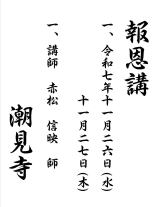 報恩講
一、令和七年十一月二六日(水)
十一月二七日(木)
一、講師 赤松 信映 師
潮見寺